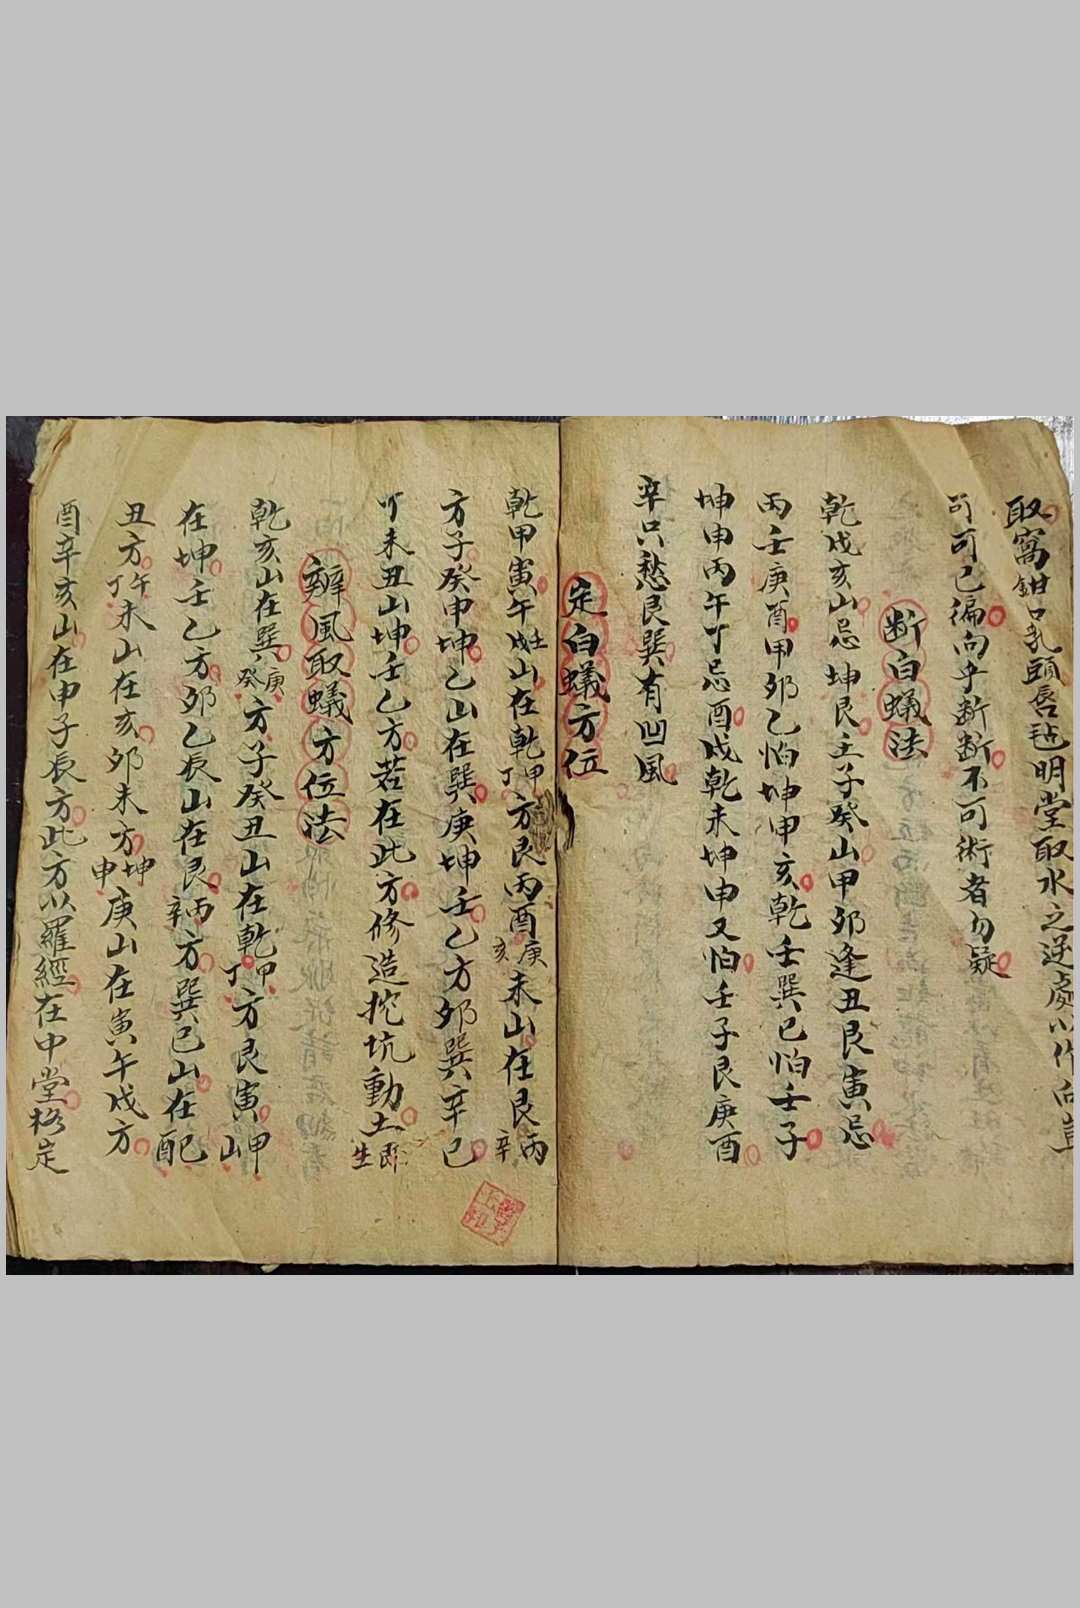 取窩鉗口乳頭唇毡明堂取水之逆處以作向豈
可可已徧向乎断断不可術者勿疑
断白蟻法
乾戌亥山忌坤艮壬子癸山甲卯逢丑艮寅忌
丙壬庚酉甲卯乙怕坤申亥乾壬巽巳怕壬子
坤申丙午丁忌酉戌乾未坤申又怕壬子艮庚酉
辛只愁艮巽有凹風
定白蟻方位
乾甲寅午戌壬山在乾甲丁方艮丙酉庚亥未山在艮丙辛
方子癸申坤乙山在巽庚坤壬乙方卯巽辛巳
丁未丑山坤壬乙方若在此方修造挖坑動土即生
辦風取蟻方位法
乾亥山在巽庚癸方子癸丑山在乾甲丁方艮寅甲山
在坤壬乙方卯乙辰山在艮丙辛方巽巳山在配
丑方午丁未山在亥卯未方坤申庚山在寅午戌方
酉辛亥山在申子辰方此方以羅經在中堂格定